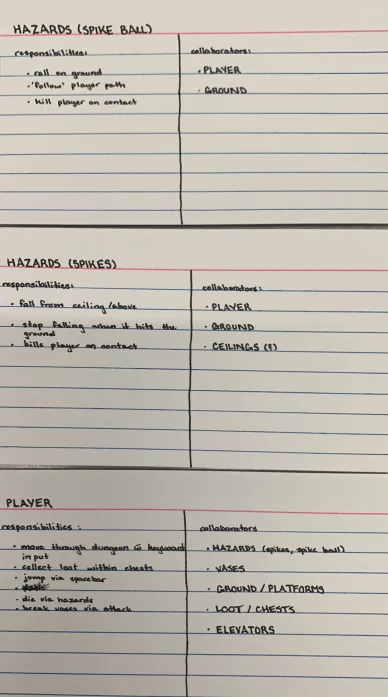 HAZARDS (SPIKE BALL)
responsibilities:
• roll on ground
• 'follow' player path
• kill player on contact
collaborators:
• PLAYER
• GROUND
HAZARDS (SPIKES)
responsibilities:
• fall from ceiling/above
• stop falling when it hits the
ground
• kills player on contact
collaborators:
• PLAYER
• GROUND
• CEILINGS (?)
PLAYER
responsibilities:
• move through dungeon w keyboard
input
• collect loot within chests
• jump via spacebar
• die via hazards
• break vases via attack
collaborators
• HAZARDS (spikes, spike ball)
• VASES
• GROUND / PLATFORMS
• LOOT / CHESTS
• ELEVATORS